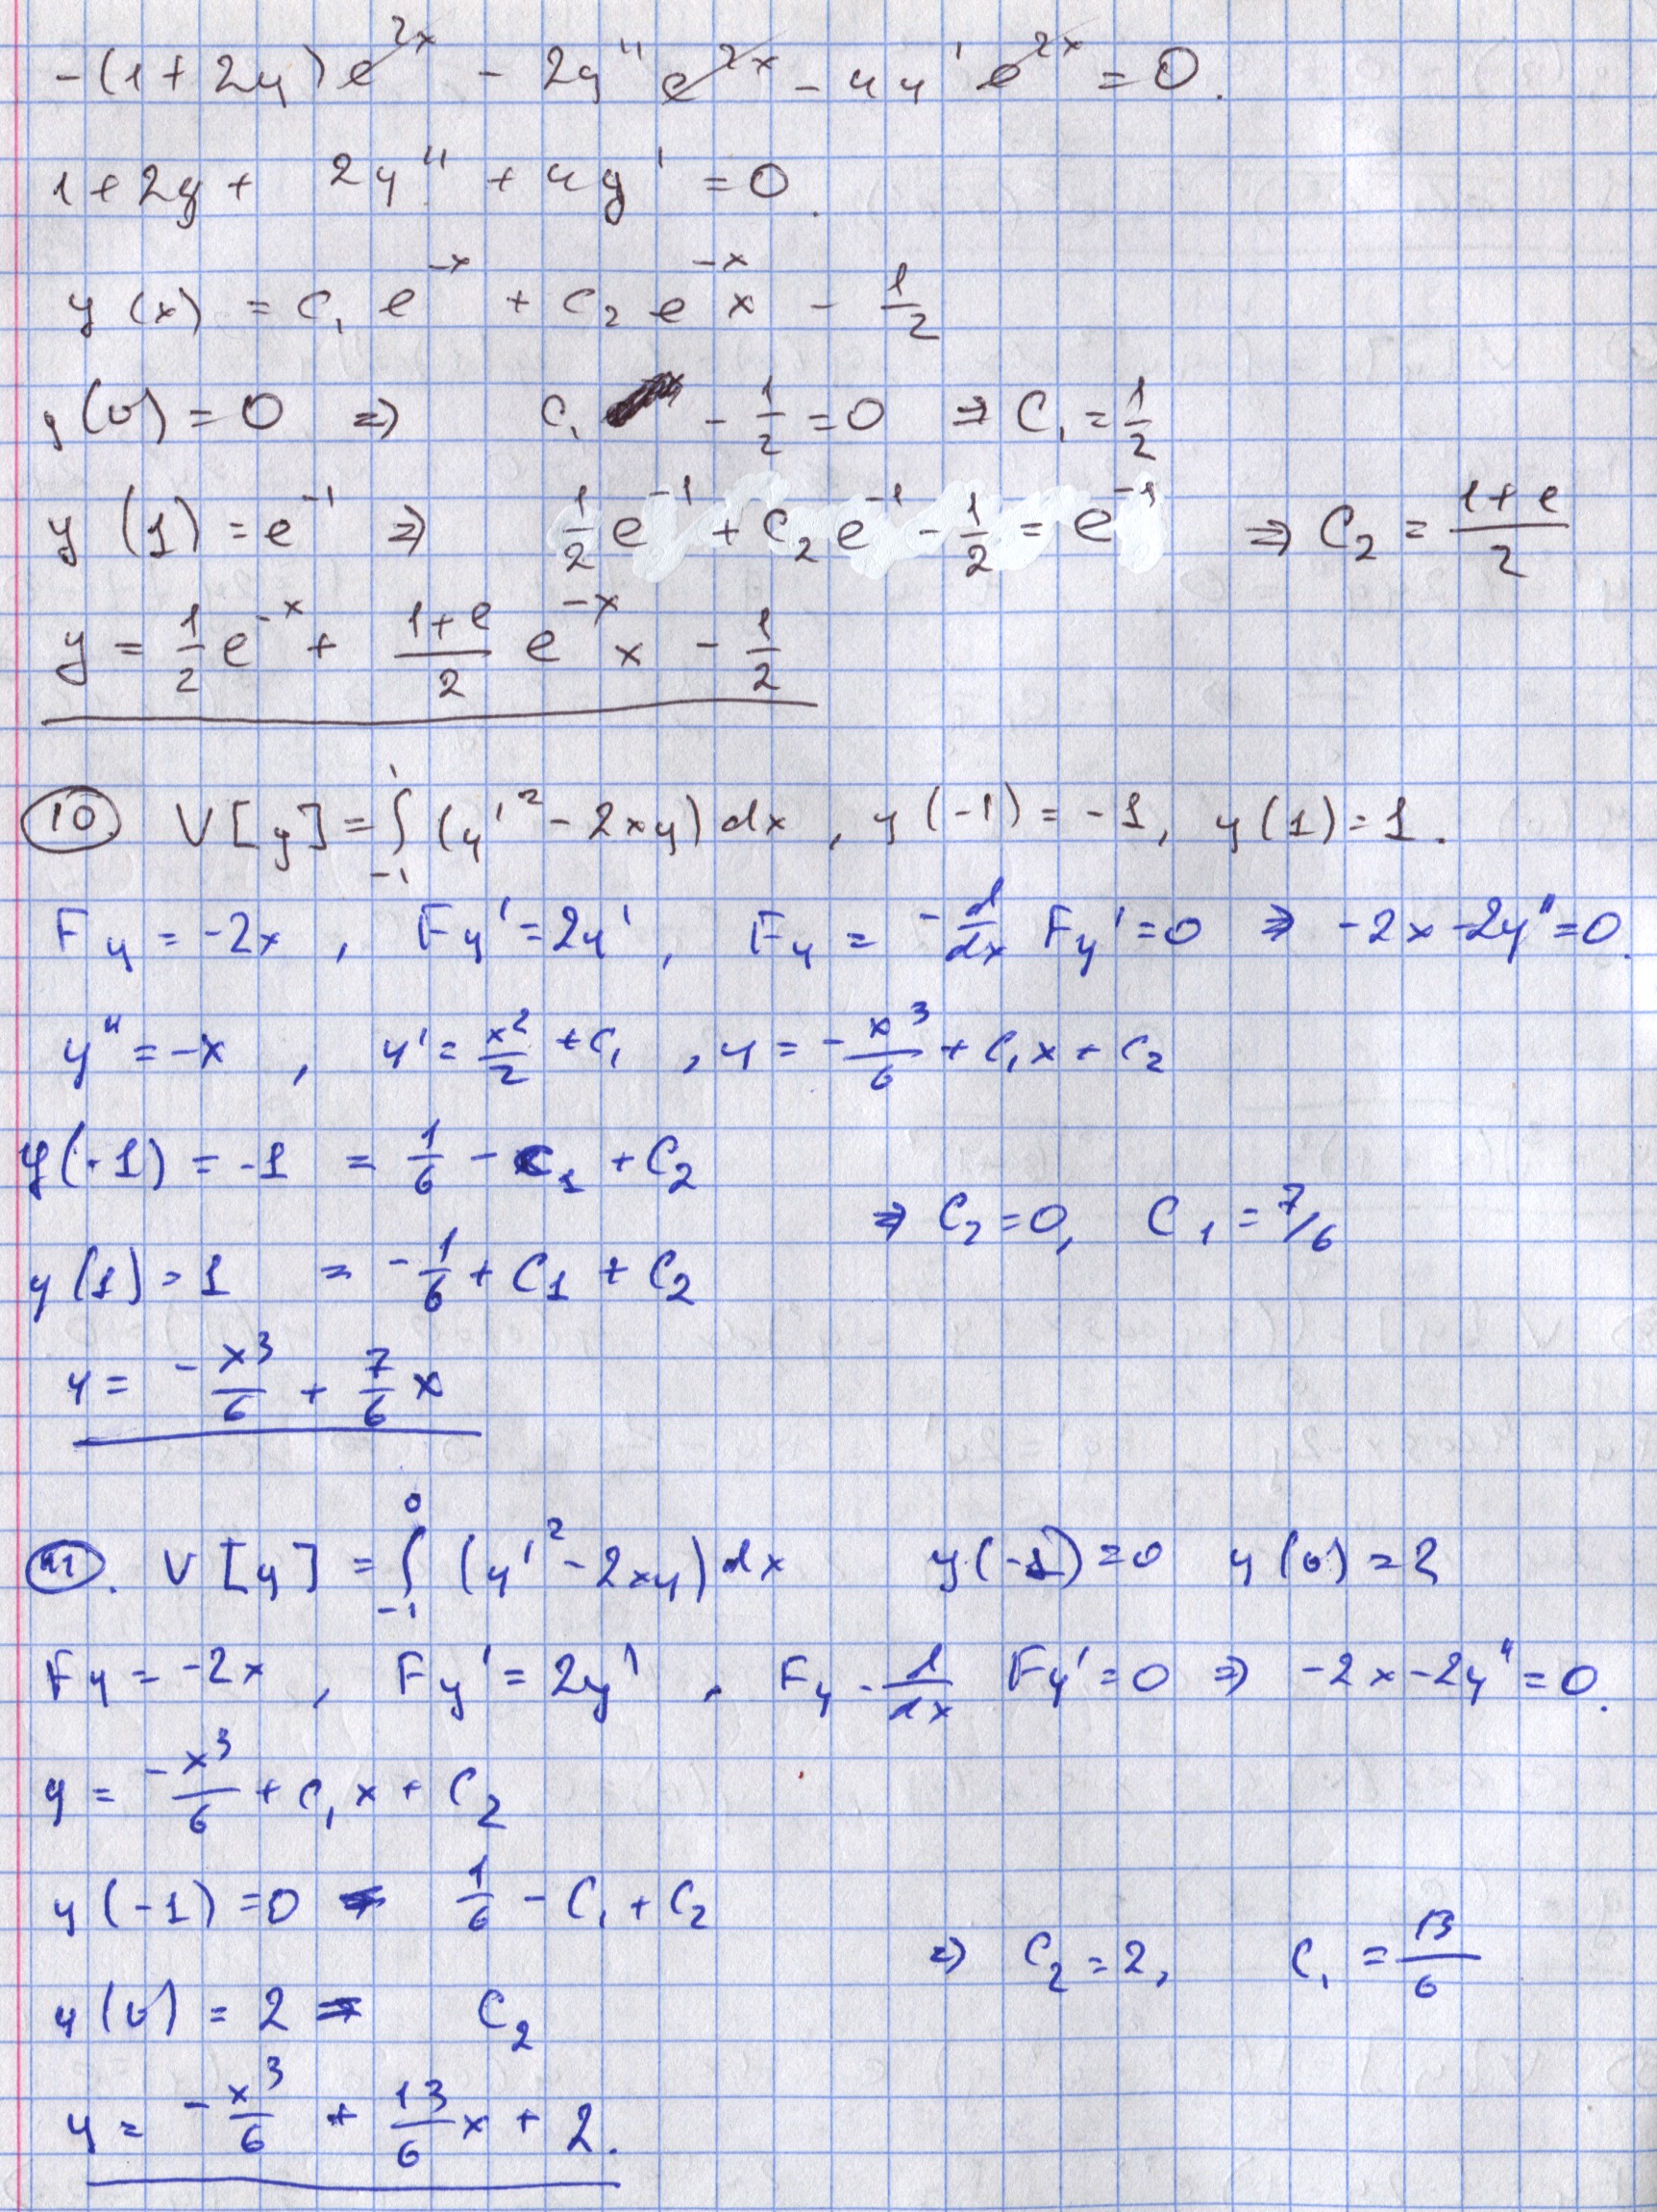 -(1+2y)e^{2x} - 2y''e^{2x} - 4y'e^{2x} = 0.
1+2y+ 2y'' + 4y' = 0.
y(x) = C₁ e^{-x} + C₂ e^{-x} x - 1/2
y(0) = 0 ⇒ C₁ - 1/2 = 0 ⇒ C₁ = 1/2
y(1) = e^{-1} ⇒ 1/2 e^{-1} + C₂ e^{-1} - 1/2 = e^{-1} ⇒ C₂ = (1+e)/2
y = 1/2 e^{-x} + (1+e)/2 e^{-x} x - 1/2
10 V[y] = ∫_{-1}^{1} (y'² - 2xy) dx, y(-1) = -1, y(1) = 1.
F_y = -2x, F_y' = 2y', F_y = - d/dx F_y' = 0 ⇒ -2x - 2y'' = 0.
y'' = -x, y' = x²/2 + C₁, y = - x³/6 + C₁x + C₂
y(-1) = -1 = 1/6 - C₁ + C₂
⇒ C₂ = 0, C₁ = 7/6
y(1) = 1 = - 1/6 + C₁ + C₂
y = - x³/6 + 7/6 x
11. V[y] = ∫_{-1}^{0} (y'² - 2xy) dx y(-1) = 0 y(0) = 2
F_y = -2x, F_y' = 2y', F_y - d/dx F_y' = 0 ⇒ -2x - 2y'' = 0.
y = - x³/6 + C₁x + C₂
y(-1) = 0 = 1/6 - C₁ + C₂
⇒ C₂ = 2, C₁ = 13/6
y(0) = 2 = C₂
y = - x³/6 + 13/6 x + 2.